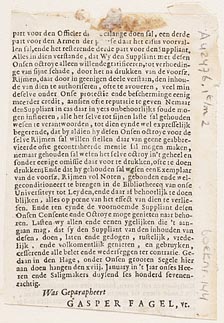 part voor den Officier die de calange doen sal, een derde
part voor den Armen der plaetse daar het casus voorval-
len sal, ende het resterende derde part voor den Suppliant,
Alles in dien verstande, dat Wy den Suppliant met desen
Onsen octroye alleen willende gratificeren, tot verhoedin-
ge van sijne schade, door het na drukken van de voorsz.
Rijmen, daar door in geenigen deele verstaan, den inhou-
de van dien te authoriseren, ofte te avoueren, veel min
deselve onder Onse protectie ende bescherminge eenig
meerder credit, aansien ofte reputatie te geven. Nemaar
den Suppliant in cas daar in yets onbehoorlijks soude mo-
gen influeren, alle het selve tot sijnen laste sal gehouden
wesen te verantwoorden, tot dien eynde wel expresselijk
begerende, dat by aldien hy desen Onsen octroye voor de
selve Rijmen sal willen stellen daar van geene geabbre-
vieerde ofte gecontraheerde mentie sal mogen maken,
nemaar gehouden sal wesen het selve octroy in 't geheel en
sonder eenige omissie daar voor te drukken, ofte te doen
drukken; Ende dat hy gehouden sal wesen een exemplaar
van de voorsz. Rijmen vol Noten, gebonden ende wel-
geconditioneert te brengen in de Bibliotheecq van onse
Universiteyt tot Leyden, ende daar af behoorlijk te doen
blijcken, alles op pœne van het effect van dien te verlie-
sen. Ende ten eynde de voornoemde Suppliant desen
Onsen Consente ende Octroye moge genieten naar behoo-
ren. Lasten wy allen ende ygelijken die 't aan-
gaan mag, dat sy den Suppliant van den inhouden van
desen, doen, laten ende gedogen, rustelijk, vrede-
lijk, ende volkomentlijk genieten, en gebruyken,
cesserende alle belet ende wederseggen ter contrarie. Ge-
daan in den Hage, onder Onsen grooten zegele hier
aan doen hangen den xviij. January in 't Jaar onses Hee-
ren ende Saligmakers duysent ses hondert seven en
zeventig.
Was Geparapheert
GASPER FAGEL, vt.